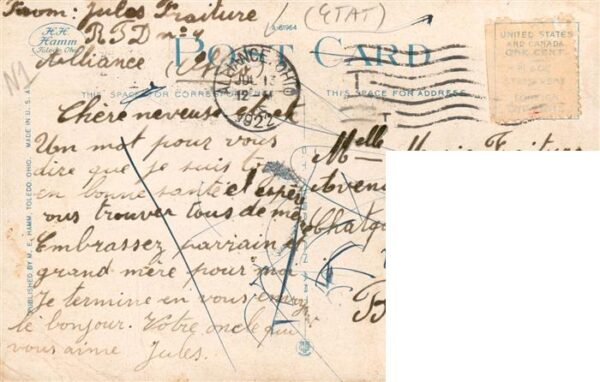 From: Jules Fraiture
R F D no 4
Alliance
(ETAT)
A-81964
N1
HH
Hamm
Toledo Ohio
POST CARD
ALLIANCE, OHIO
JUL 13
12 M
1922
UNITED STATES
AND CANADA
ONE CENT
THIS SPACE FOR CORRESPONDENCE
THIS SPACE FOR ADDRESS
PUBLISHED BY M. E. HAMM, TOLEDO OHIO. MADE IN U. S. A.
Chère neveuse
Un mot pour vous
dire que je suis
en bonne santé et
vous trouver tous de
Embrassez parrain
grand mère pour
Je termine en vous
le bonjour. Votre oncle qui
vous aime Jules.
Melle